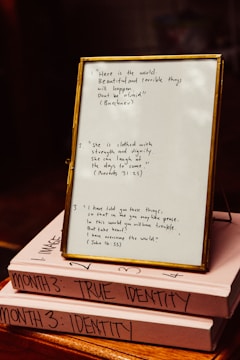 1. "Here is the world.
Beautiful and terrible things
will happen.
Dont be afraid"
(Buechner)
2. "She is clothed with
strength and dignity
She can laugh at
the days to come."
(Proverbs 31:25)
3. "I have told you these things,
so that in me you may have peace.
In this world you will have trouble
But take heart!
I have overcome the world"
(John 16:33)
MONTH 3: TRUE IDENTITY
MONTH 3: IDENTITY